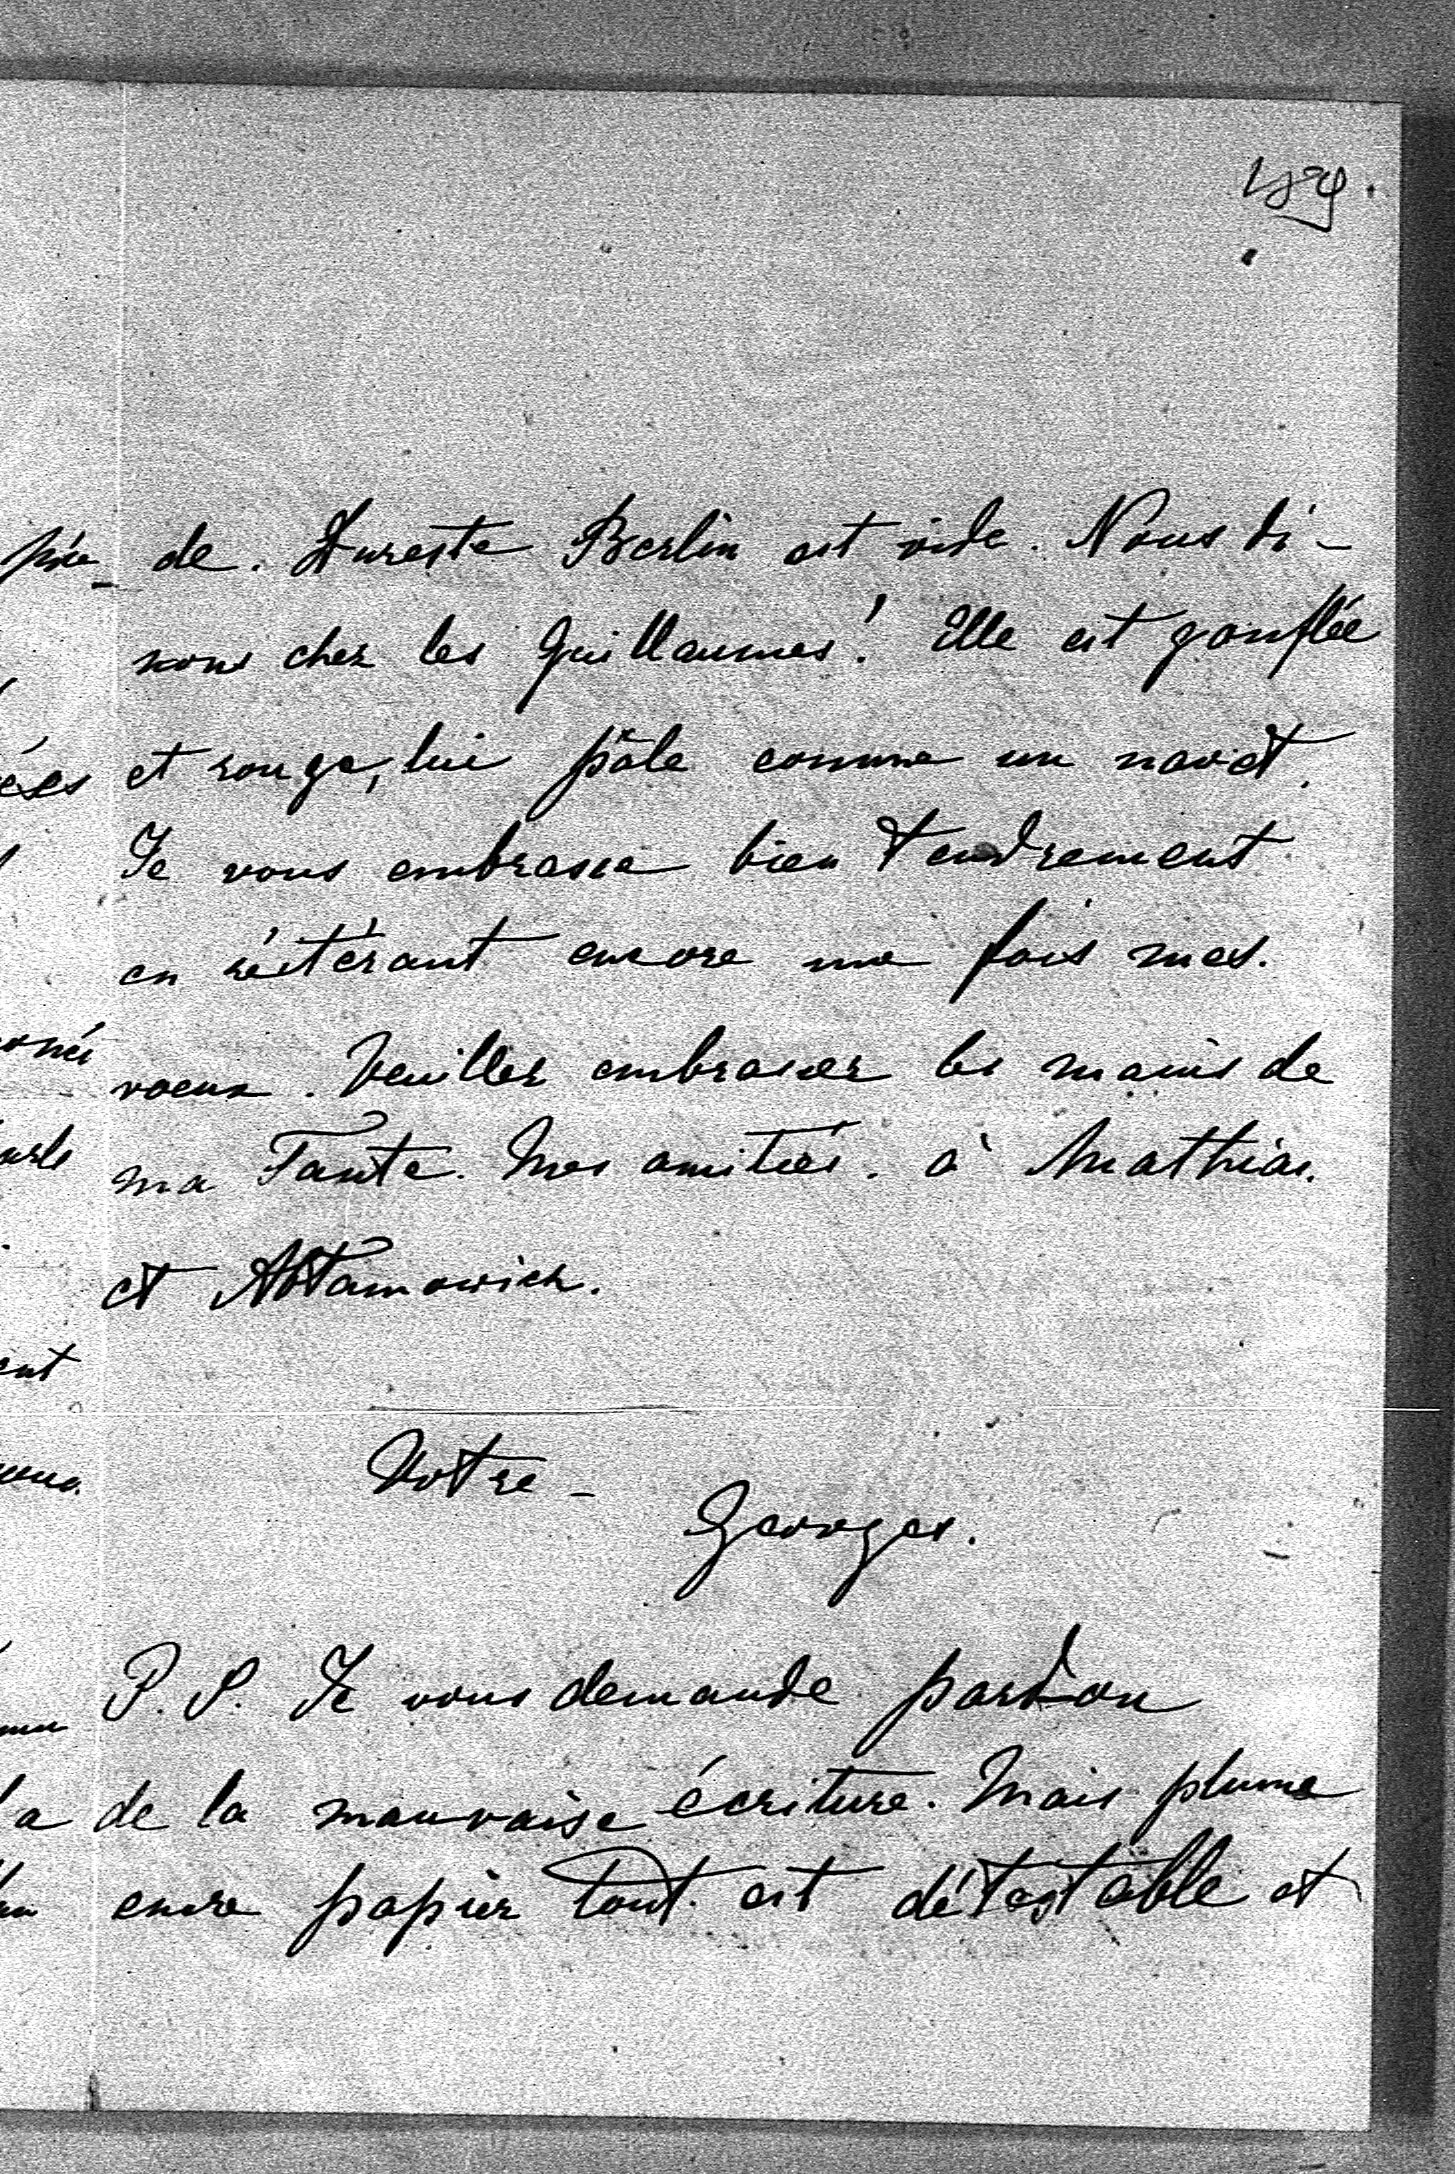 de. Dureste Berlin est vide. Nous di-
nons chez les Guillaumes! Elle est gonflée
et rouge, lui pâle comme un navet.
Je vous embrasse bien tendrement
en réitérant encore une fois mes.
voeux. Veuillez embrasser les mains de
ma Tante. Mes amitiés. à Mathias.
et
Votre -
Georges.
P. S. Je vous demande pardon
de la mauvaise écriture. Mais plume
encre papier tout est détestable et